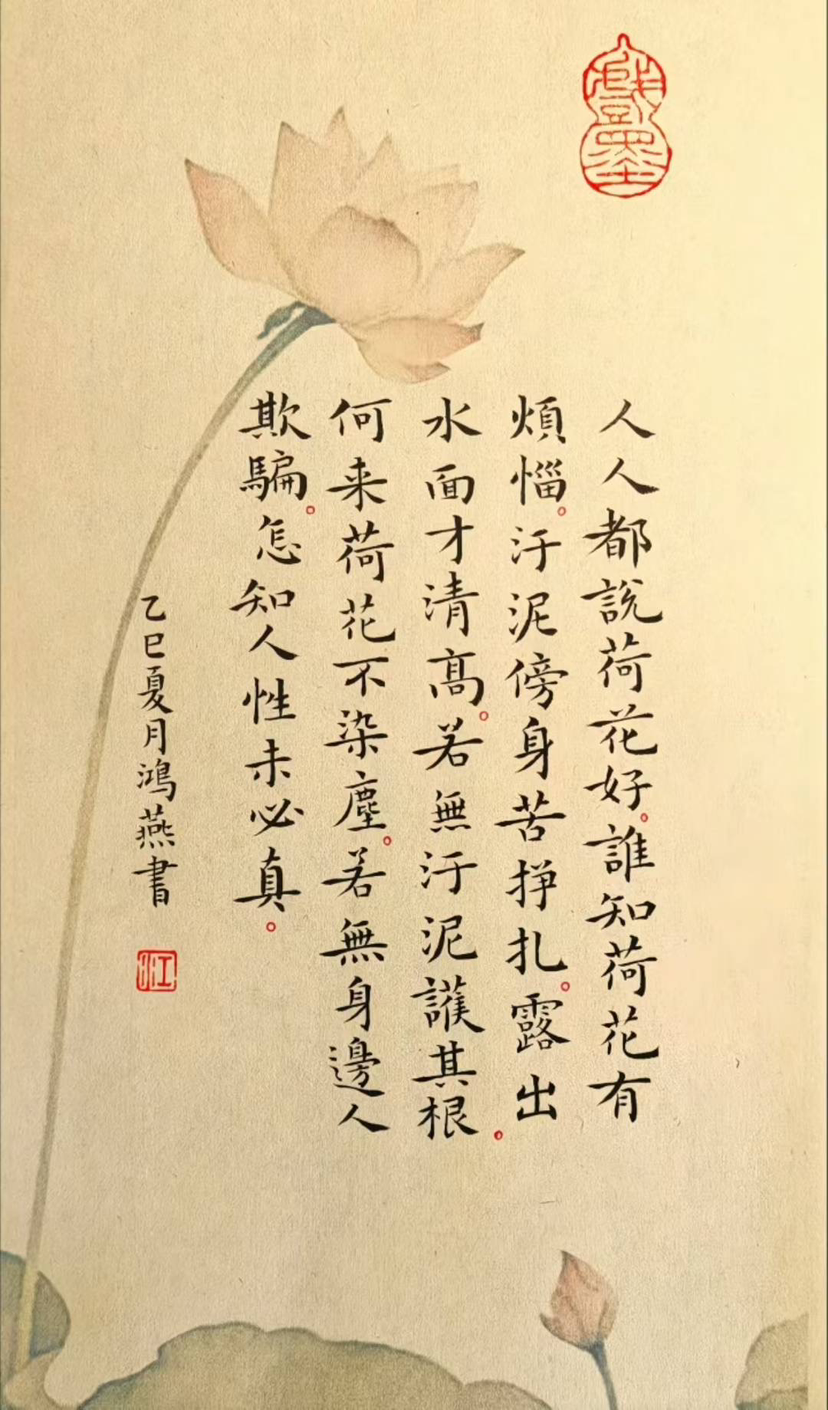 戲墨
人人都說荷花好。誰知荷花有
煩惱。汙泥傍身苦挣扎。露出
水面才清高。若無汙泥護其根。
何来荷花不染塵。若無身邊人
欺騙。怎知人性未必真。
乙巳夏月鴻燕書
江